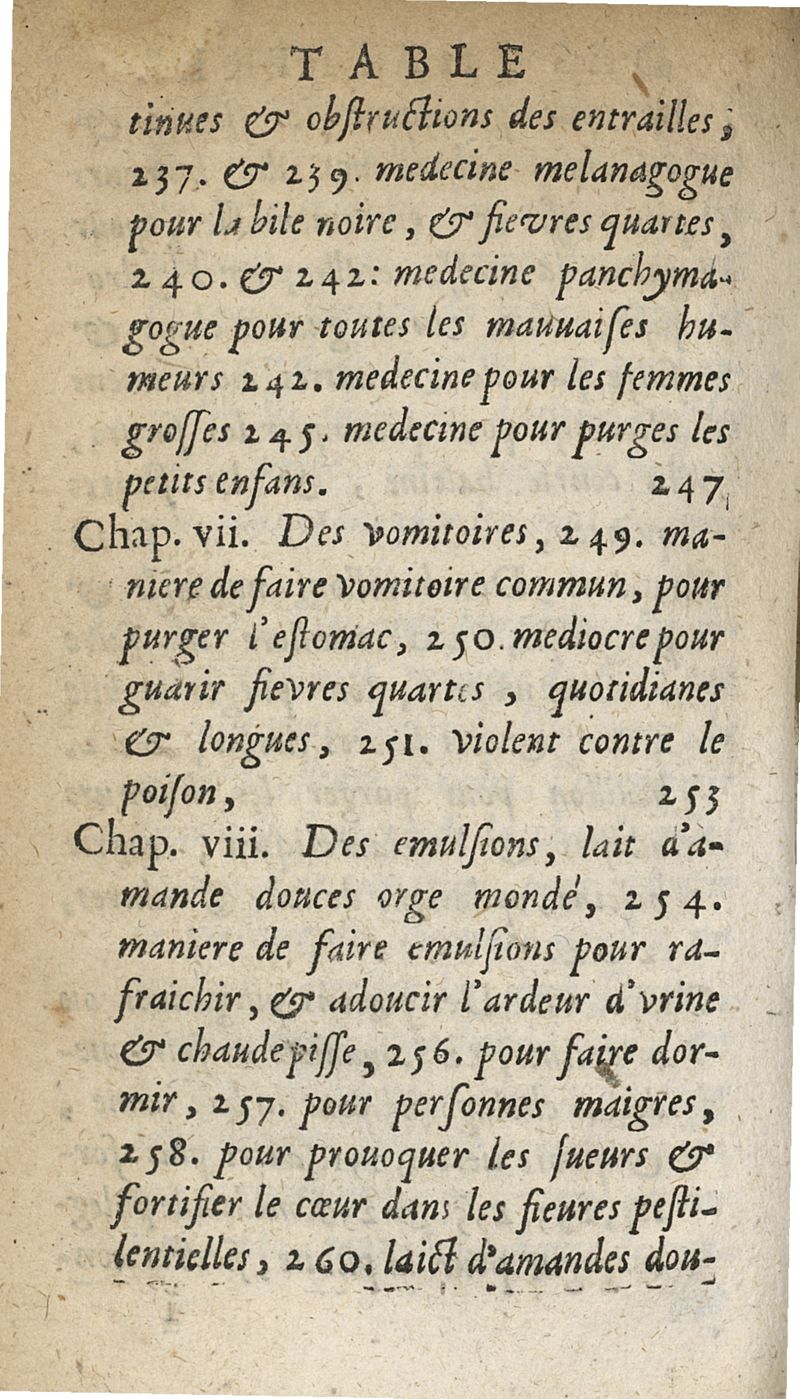 TABLE
tinues & obſtructions des entrailles,
237. & 239. medecine melanagogue
pour la bile noire, & fievres quartes,
240. & 242: medecine panchyma-
gogue pour toutes les mauuaiſes hu-
meurs 242. medecine pour les femmes
groſſes 245. medecine pour purges les
petits enfans. 247
Chap. vii. Des vomitoires, 249. ma-
niere de faire vomitoire commun, pour
purger l'eſtomac, 250. mediocre pour
guarir fievres quartes, quotidianes
& longues, 251. violent contre le
poiſon, 253
Chap. viii. Des emulſions, lait d'a-
mande douces orge mondé, 254.
maniere de faire emulſions pour ra-
fraichir, & adoucir l'ardeur d'vrine
& chaudepiſſe, 256. pour faire dor-
mir, 257. pour perſonnes maigres,
258. pour prouoquer les ſueurs &
fortifier le cœur dans les fieures peſti-
lentielles, 260. laict d'amandes dou-